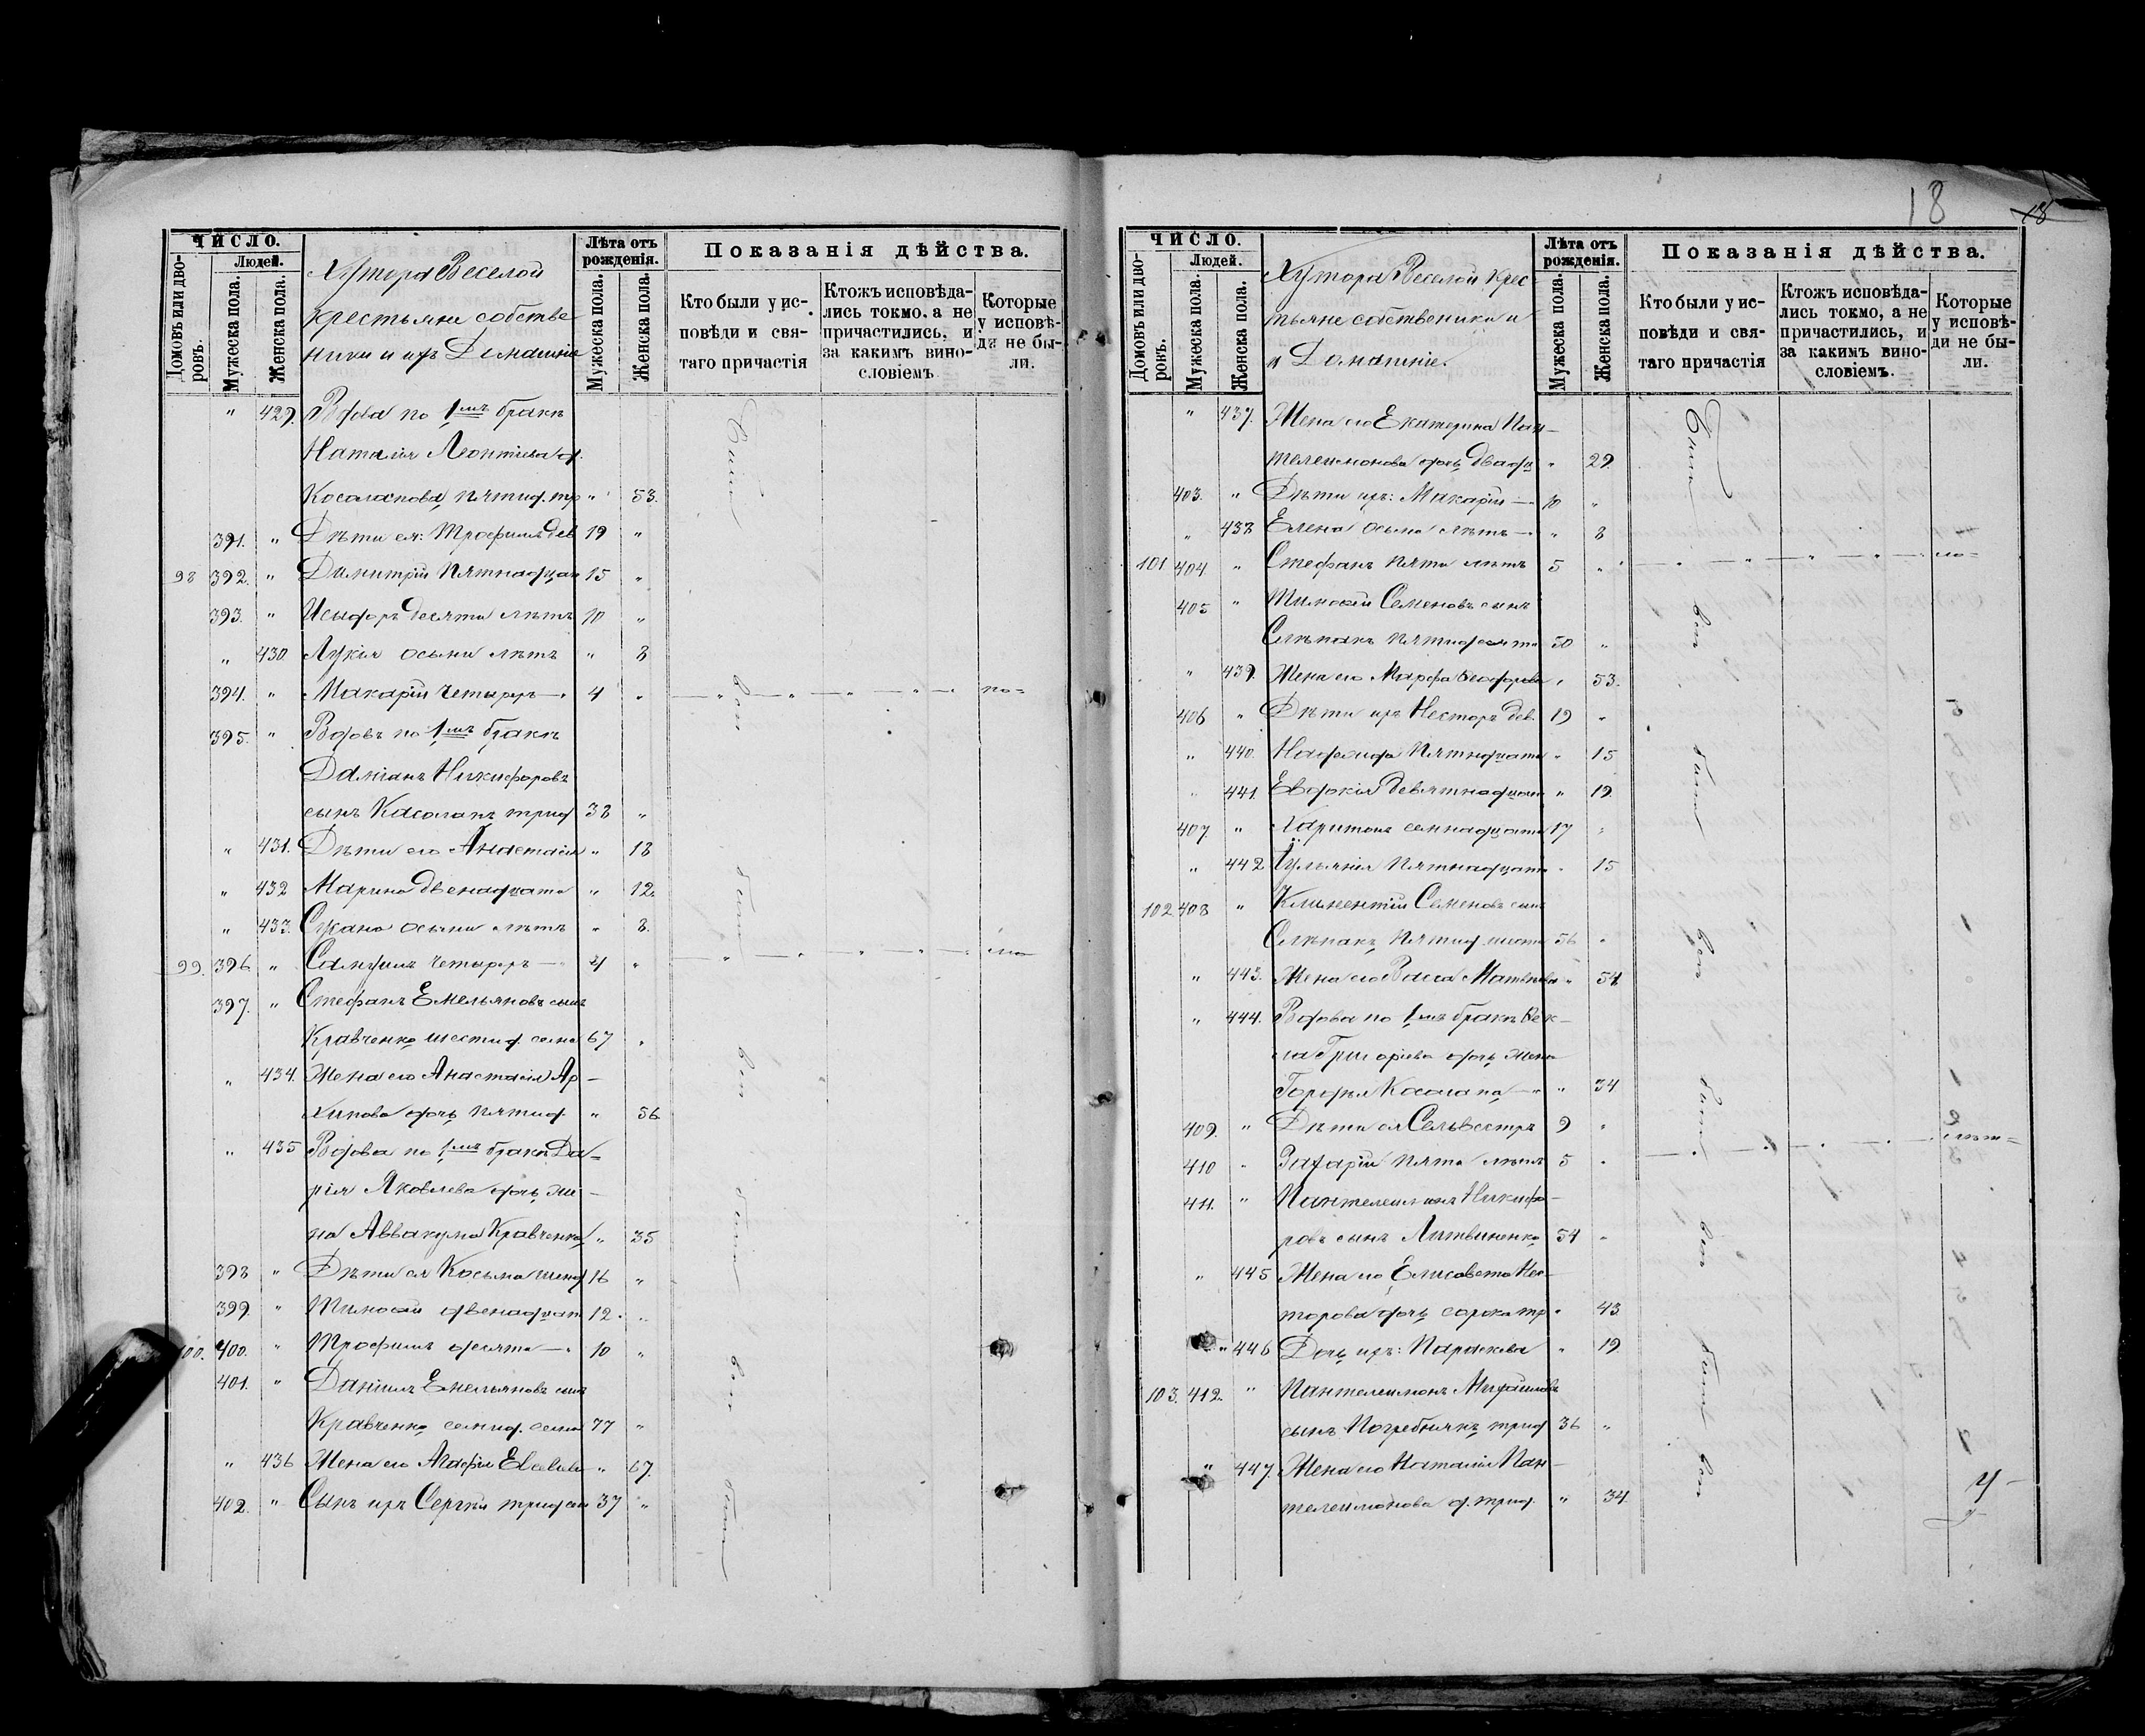 18
18
ЧИСЛО.
Домовъ или дво-
ровъ.
Людей.
Мужеска пола.
Женска пола.
Хутора Веселой
крестьяне собстве
ники и ихъ Домашніе
Лѣта отъ
рожденія.
Мужеска пола.
Женска пола.
Показанія дѣйства.
Кто были у ис-
повѣди и свя-
таго причастія
Ктожъ исповѣда-
лись токмо, а не
причастились, и
за какимъ вино-
словіемъ
Которые
у исповѣ-
ди не бы-
ли.
" 429. Вдова по 1мъ бракѣ
Наталія Леонтіева д.
Косолапова пятид. тр " 53.
391. " Дѣти ея: Трофимъ дев 19 "
98 392. " Димитрій пятнадцат 15 "
393. " Исидоръ десяти лѣтъ 10 "
" 430. Лукія осьми лѣтъ " 8
394. " Макарій четырехъ 4 " по=
395. " Вдовъ по 1мъ бракѣ
Даміанъ Никифоровъ
сынъ Косолапъ трид 38 "
" 431. Дѣти его Анастасія " 18
" 432 Марина двенадцати " 12.
" 433. осьми лѣтъ " 8.
99. 396 " Самуилъ четырехъ 4 "
397. " Стефанъ Емельяновъ сынъ
Кравченко шестид. семи 67 "
" 434. Жена его Анастасія Ар-
хипова дочь пятид. " 56
" 435 Вдова по 1мъ бракѣ Да=
рія Яковлева дочь же-
на Аввакума Кравченко " 35
398 " Дѣти ея Косьма шенд 16 "
399. " Тимофей двенадцат 12. "
100. 400. " Трофимъ десяти 10 "
401. " Даніилъ Емельяновъ сынъ
Кравченко семид. семи 77 "
" 436 Жена его Агафія " 67.
402. " Сынъ ихъ Сергѣй трид сем 37 "
Были
вси
были
вси
были
вси
были
ЧИСЛО.
Домовъ или дво-
ровъ.
Людей.
Мужеска пола.
Женска пола.
Хутора Веселой крес-
тьяне собственики и
и Домашніе.
Лѣта отъ
рожденія.
Мужеска пола.
Женска пола.
Показанія дѣйства.
Кто были у ис-
повѣди и свя-
таго причастія
Ктожъ исповѣда-
лись токмо, а не
причастились, и
за какимъ вино-
словіемъ.
Которые
у исповѣ-
ди не бы-
ли.
" 437. Жена его Екатерина Пан-
телеимонова дочь двадц " 29.
403. " Дѣти ихъ: Макарій 10 "
" 438 Елена осьми лѣтъ " 8
101 404. " Стефанъ пяти лѣтъ 5 "
405 " Тимофей Семеновъ сынъ
Слѣпакъ пятидесяти 50 "
" 439. Жена его Марфа Ѳеодорова " 53.
406 " Дѣти ихъ Несторъ дев. 19 "
" 440. пятнадцати " 15
" 441. Евдокія девятнадцати " 19.
407. " Харитонъ семнадцати 17 "
" 442 Іульянія пятнадцати " 15
102 408 " Климентій Семеновъ сынъ
Слѣпакъ пятид. шести 56 "
" 443. Жена его Васса Матвѣева " 54
" 444. Вдова по 1мъ бракѣ Ѳек-
ла Григоріева дочь жена
Гордѣя Косолапа " 34
409. " Дѣти ея Сельвестръ 9 "
410 " Захарій пяти лѣтъ 5 "
411. " Пантелеимонъ Никифо-
ровъ сынъ Литвиненко 54 "
" 445 Жена его Елисавета Нес-
торова дочь сорока тр " 43
" 446 Дочь ихъ: Параскева " 19.
103. 412. " Пантелеимонъ Михайловъ
сынъ Погребнякъ трид 36 "
" 447. Жена его Наталія Пан-
телеимонова д. трид. " 34.
Были
вси
были
вси
были
вси
были
вси